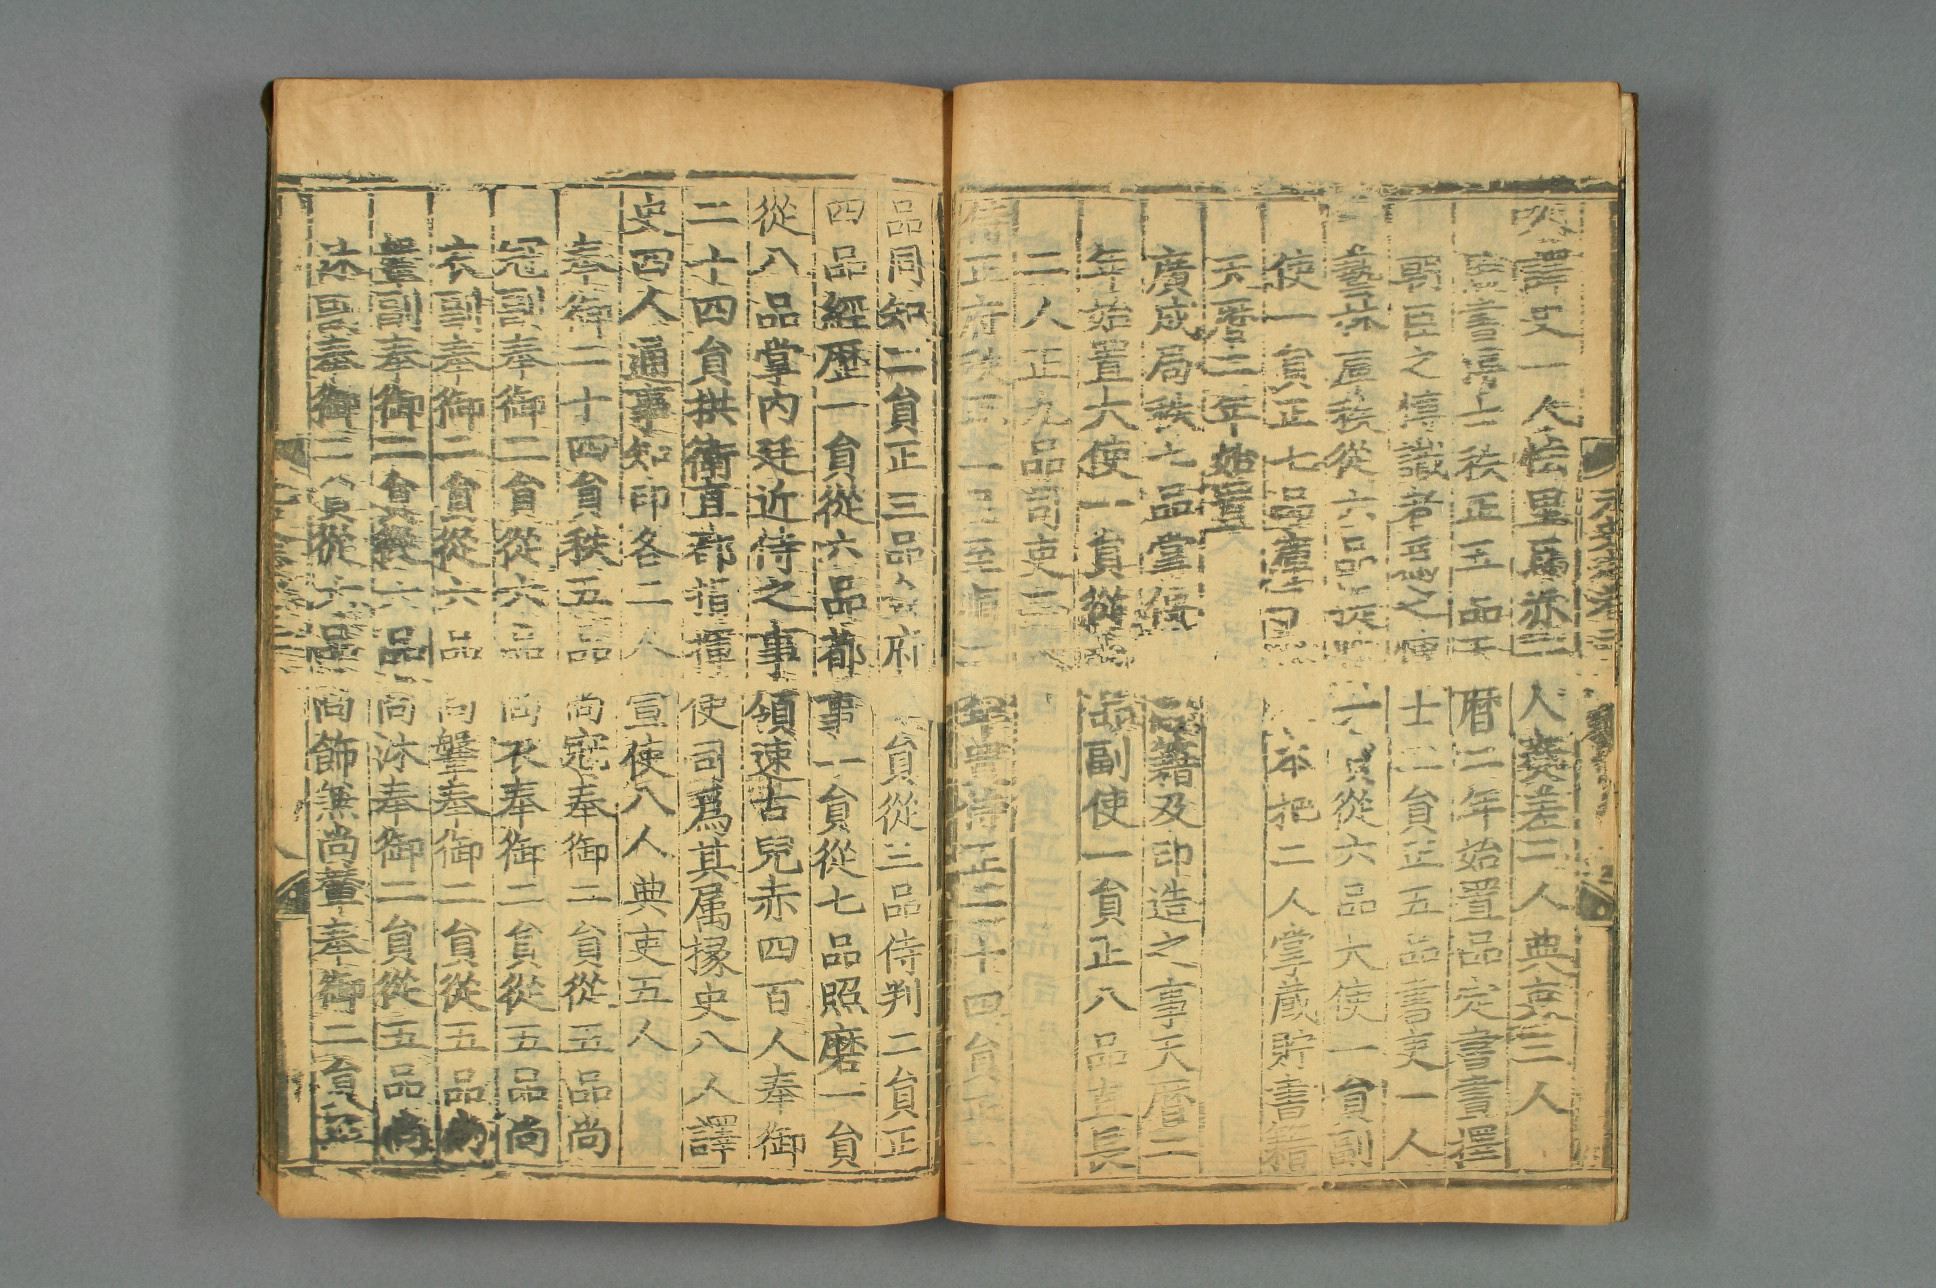 史譯史一人怯里馬赤二人奏差二人典吏三人
監書博士秩正五品天曆二年始置品定書畫擇
朝臣之博識者爲之博士二員正五品書吏一人
藝林庫秩從六品提點一員從六品大使一員副
使一員正七品庫子二人本把二人掌藏貯書籍
天曆二年始置
廣成局秩七品掌傳刻經籍及印造之事天曆二
年始置大使一員從七品副使一員正八品直長
二人正九品司吏二
侍正府秩正二品至順二年置侍正一十四員正二
品同知二員正三品僉府二員從三品侍判二員正
四品經歷一員從六品都事一員從七品照磨一員
從八品掌內廷近侍之事領速古兒赤四百人奉御
二十四員拱衛直都指揮使司爲其属掾史八人譯
史四人通事知印各二人宣使八人典吏五人
奉御二十四員秩五品尚冠奉御二員從五品尚
冠副奉御二員從六品尚衣奉御二員從五品尚
衣副奉御二員從六品尚鞶奉御二員從五品尚
鞶副奉御二員從六品尚沐奉御二員從五品尚
沐副奉御二員從六品尚飾無尚輦奉御二員正